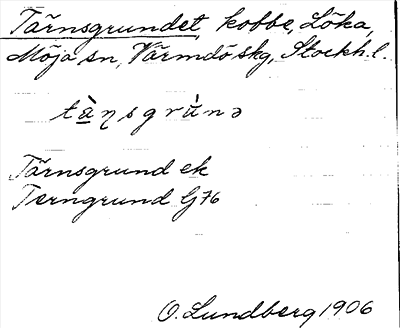 Tärnsgrundet, kobbe, Löka,
Möja sn, Värmdö skg, Stockh. l.
tä̀ŋsgrù̈nə
Tärnsgrund ek
Terngrund G76
O. Lundberg 1906